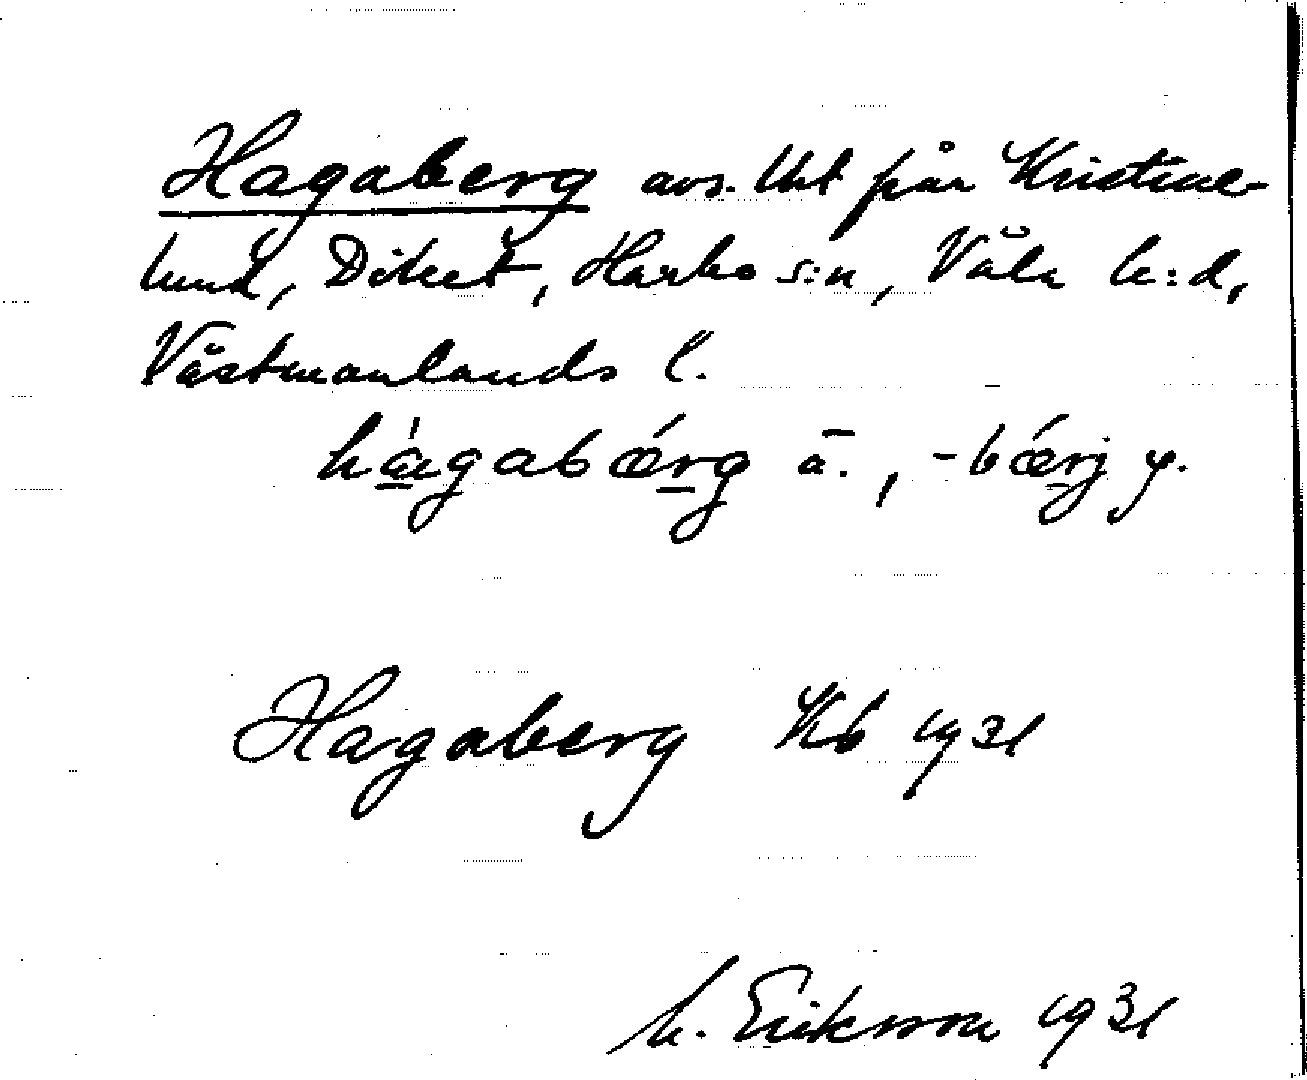 Hagaberg avs. lht från Kristine-
lund, Diket, Harbo s:n, Våla h:d,
Västmanlands l.
hágabǽrg ä., -bǽrj y.
Hagaberg Kb 1931
M. Eriksson 1931